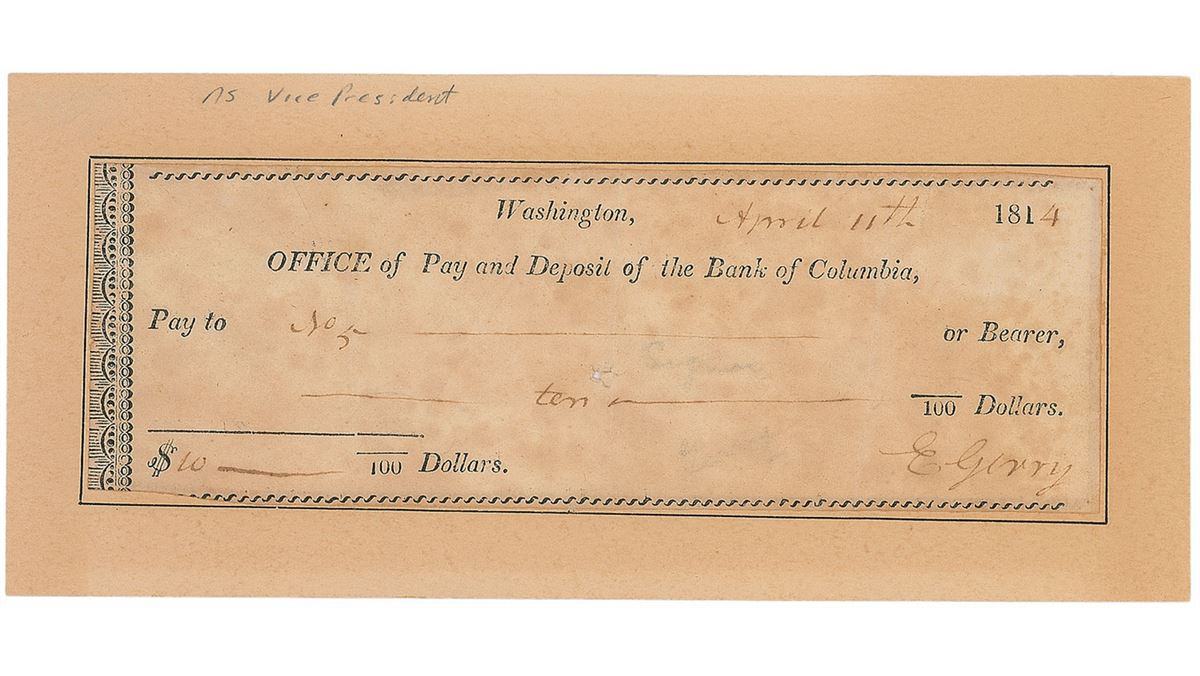 As Vice President
Washington, April 11th 1814
OFFICE of Pay and Deposit of the Bank of Columbia,
Pay to No 5 or Bearer,
ten 100 Dollars.
$10 100 Dollars.
E Gerry